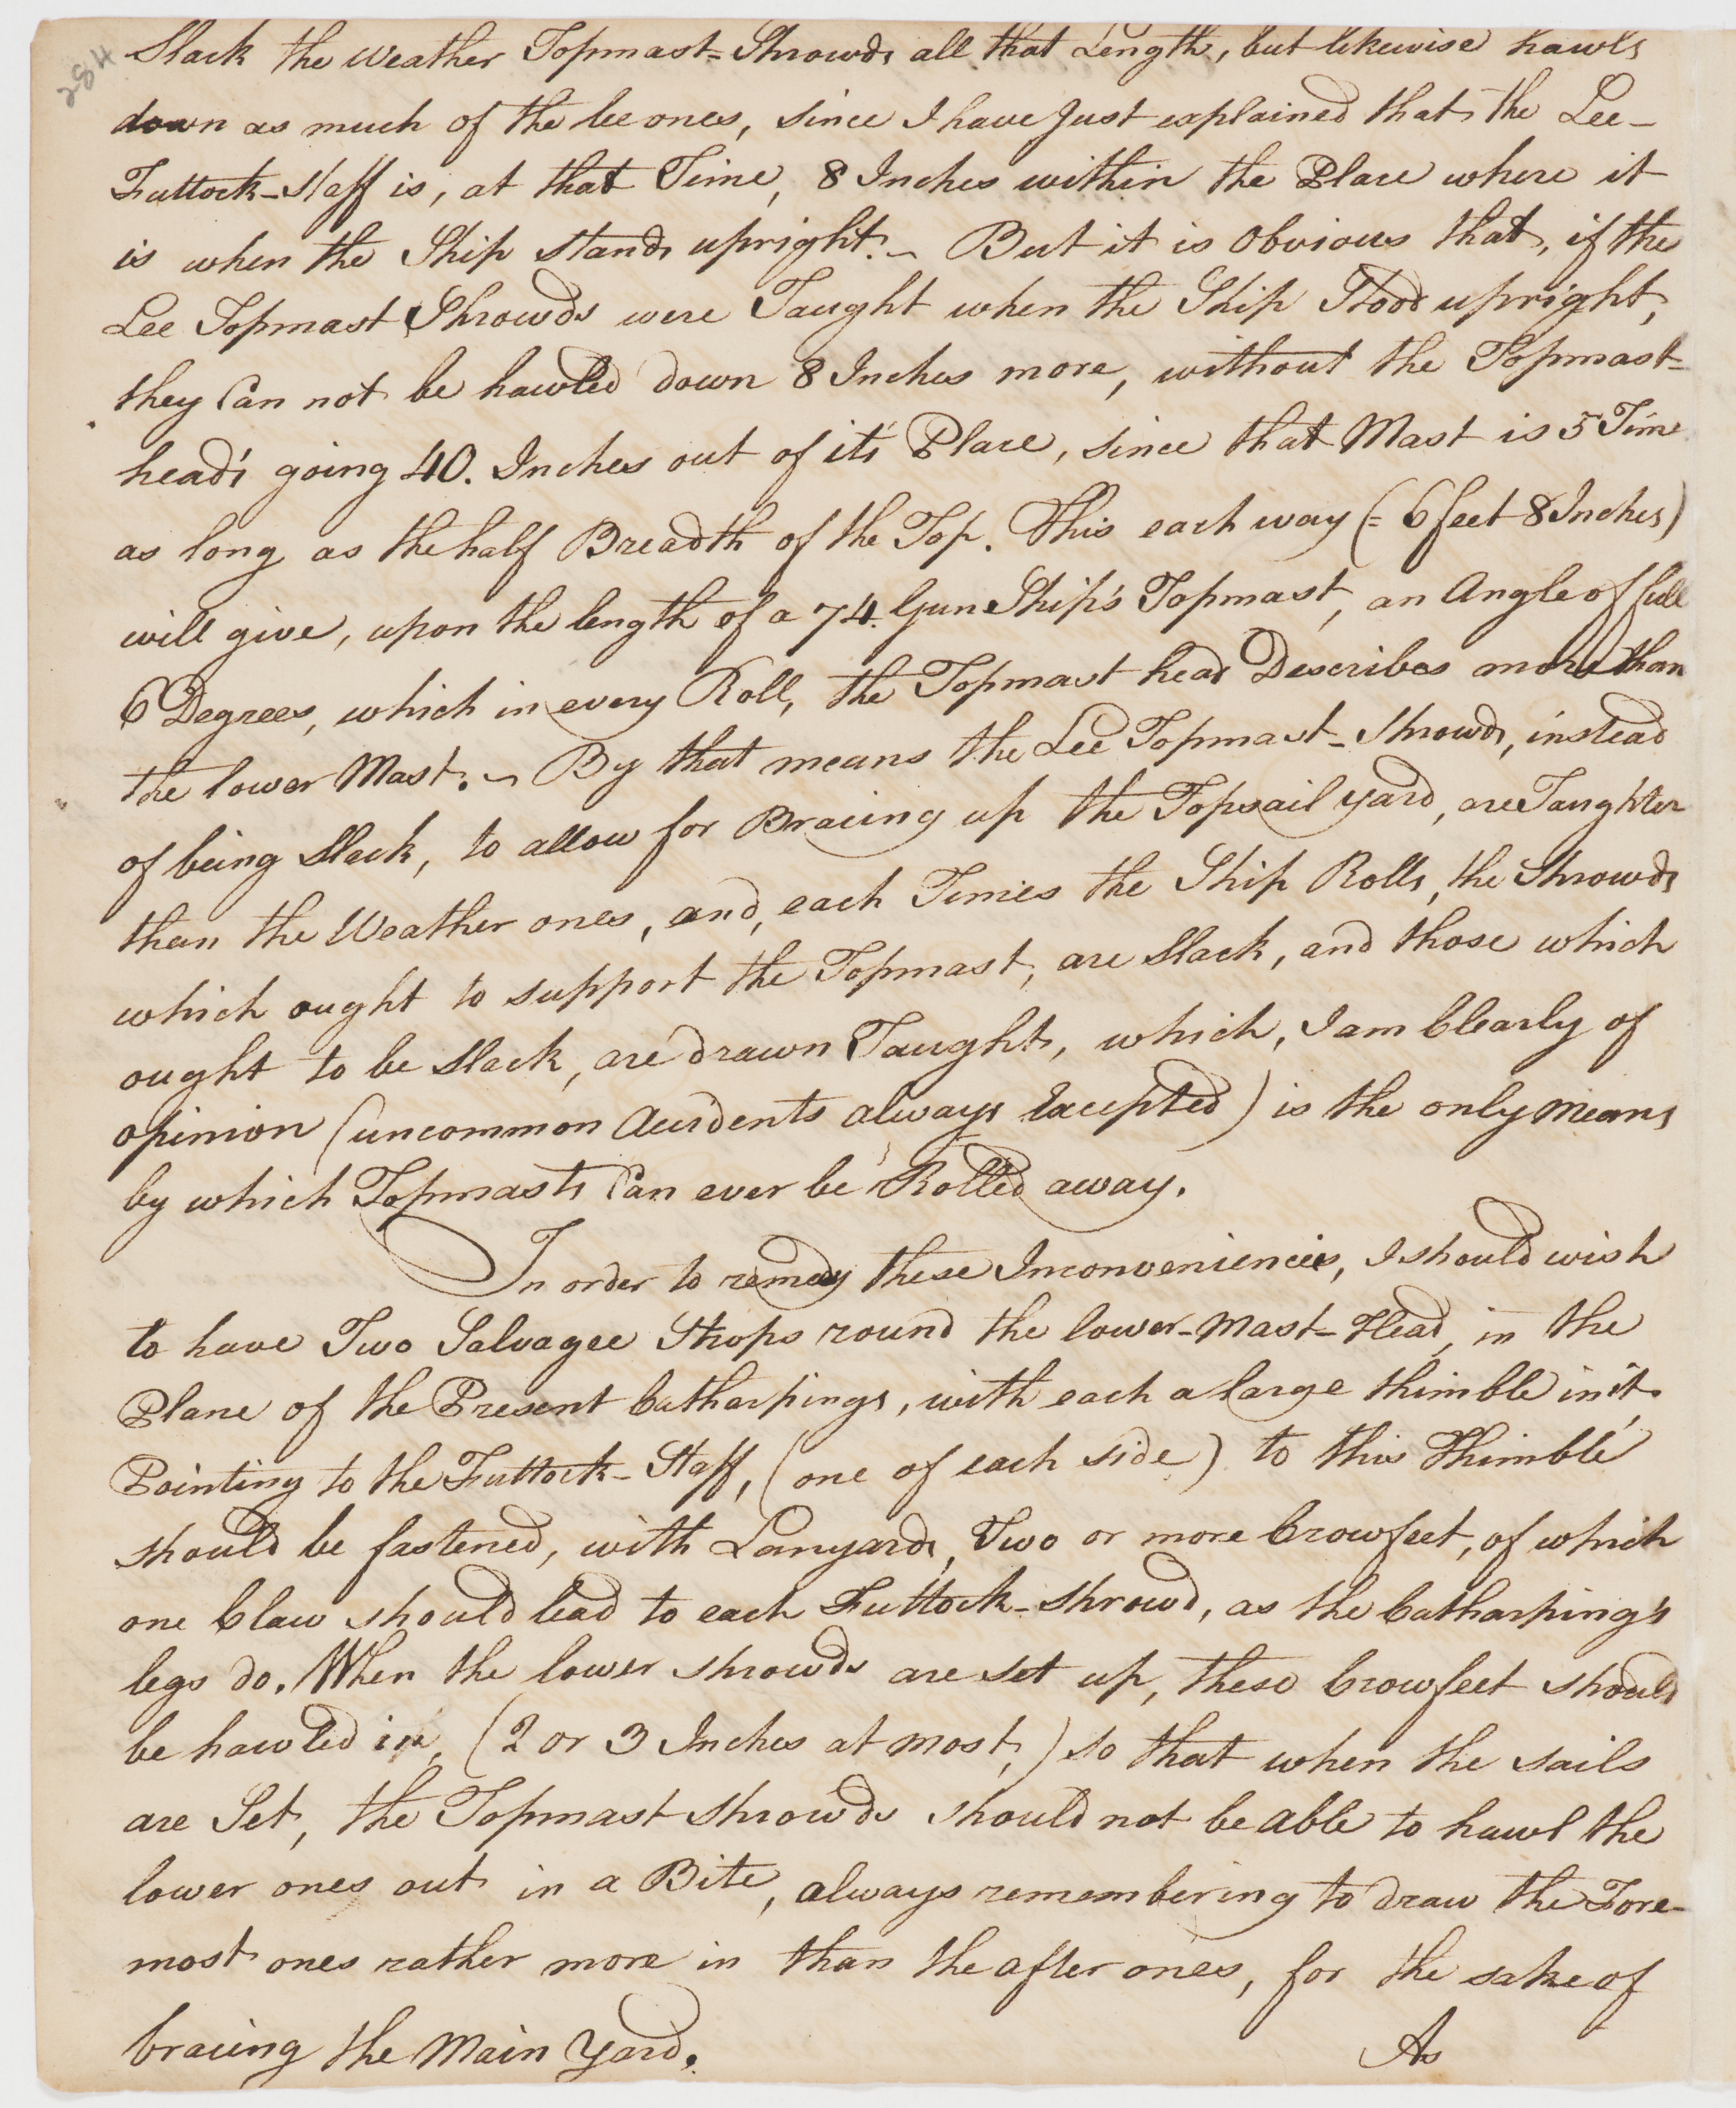 284
Slack the Weather Topmast-Shrowds all that Length, but likewise hawls
down as much of the lee ones, since I have Just explained that the Lee-
Futtock-Staff is, at that Time, 8 Inches within the Place where it
is when the Ship stands upright. ~ But it is Obvious that, if the
Lee Topmast Shrowds were Taught when the Ship Stood upright,
they Can not be hawled down 8 Inches more, without the Topmast-
head's going 40. Inches out of it's Place, since that Mast is 5 Time
as long as the half Breadth of the Top. This each way (= 6 feet 8 Inches)
will give, upon the length of a 74. Gun Ship's Topmast, an Angle of full
6 Degrees, which in every Roll, the Topmast head Describes more than
the lower Mast. ~ By that means the Lee Topmast-Shrowds, instead
of being Slack, to allow for Bracing up the Topsail yard, are Taughter
than the Weather ones, and, each Times the Ship Rolls, the Shrowds
which ought to support the Topmast, are Slack, and those which
ought to be Slack, are drawn Taught, which, I am Clearly of
opinion (uncommon Accidents always Excepted) is the only means
by which Topmasts Can ever be Rolled away.
In order to remedy these Inconveniencies, I should wish
to have Two Salvagee Strops round the lower-Mast-Head, in the
Plane of the Present Catharpings, with each a large thimble in it
Pointing to the Futtock-Staff, (one of each side) to this Thimble
should be fastened, with Lanyards, Two or more Crowfeet, of which
one Claw should lead to each Futtock-Shrowd, as the Catharping's
legs do. When the lower shrowds are set up, these Crowfeet should
be hawled in, (2 or 3 Inches at most,) so that when the sails
are Set, the Topmast shrowds should not be able to hawl the
lower ones out in a Bite, always remembering to draw the Fore-
most ones rather more in than the after ones, for the sake of
bracing the Main Yard.
As